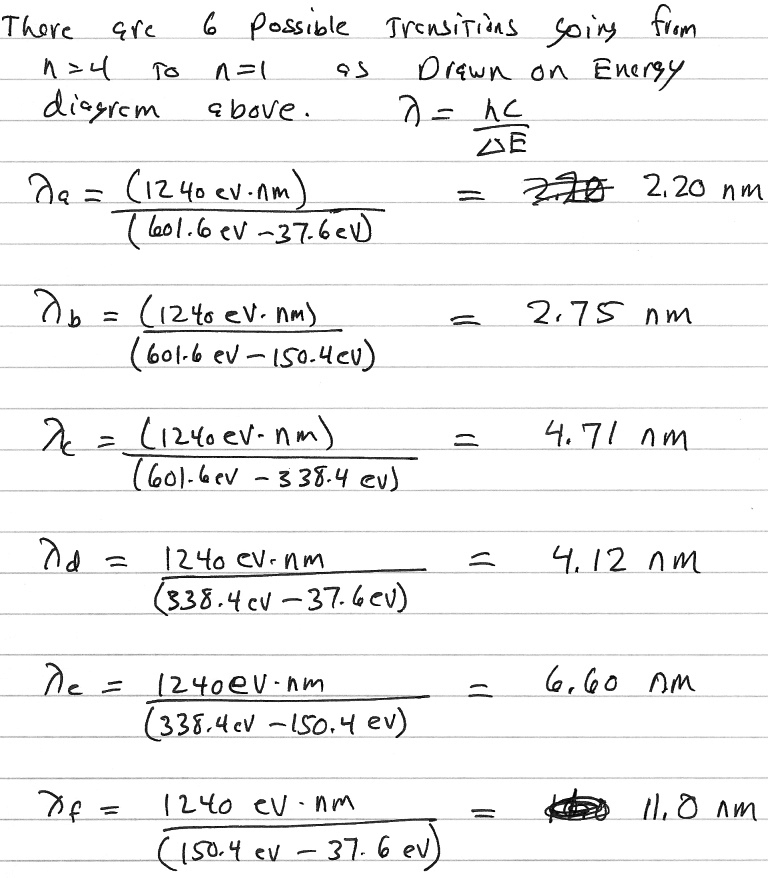 There are 6 possible Transitions going from
n=4 To n=1 as Drawn on Energy
diagram above. λ = hc/ΔE
λa = (1240 eV·nm)/(601.6 eV - 37.6 eV) = 2.20 nm
λb = (1240 eV·nm)/(601.6 eV - 150.4 eV) = 2.75 nm
λc = (1240 eV·nm)/(601.6 eV - 338.4 eV) = 4.71 nm
λd = 1240 eV·nm/(338.4 eV - 37.6 eV) = 4.12 nm
λe = 1240 eV·nm/(338.4 eV - 150.4 eV) = 6.60 nm
λf = 1240 eV·nm/(150.4 eV - 37.6 eV) = 11.0 nm